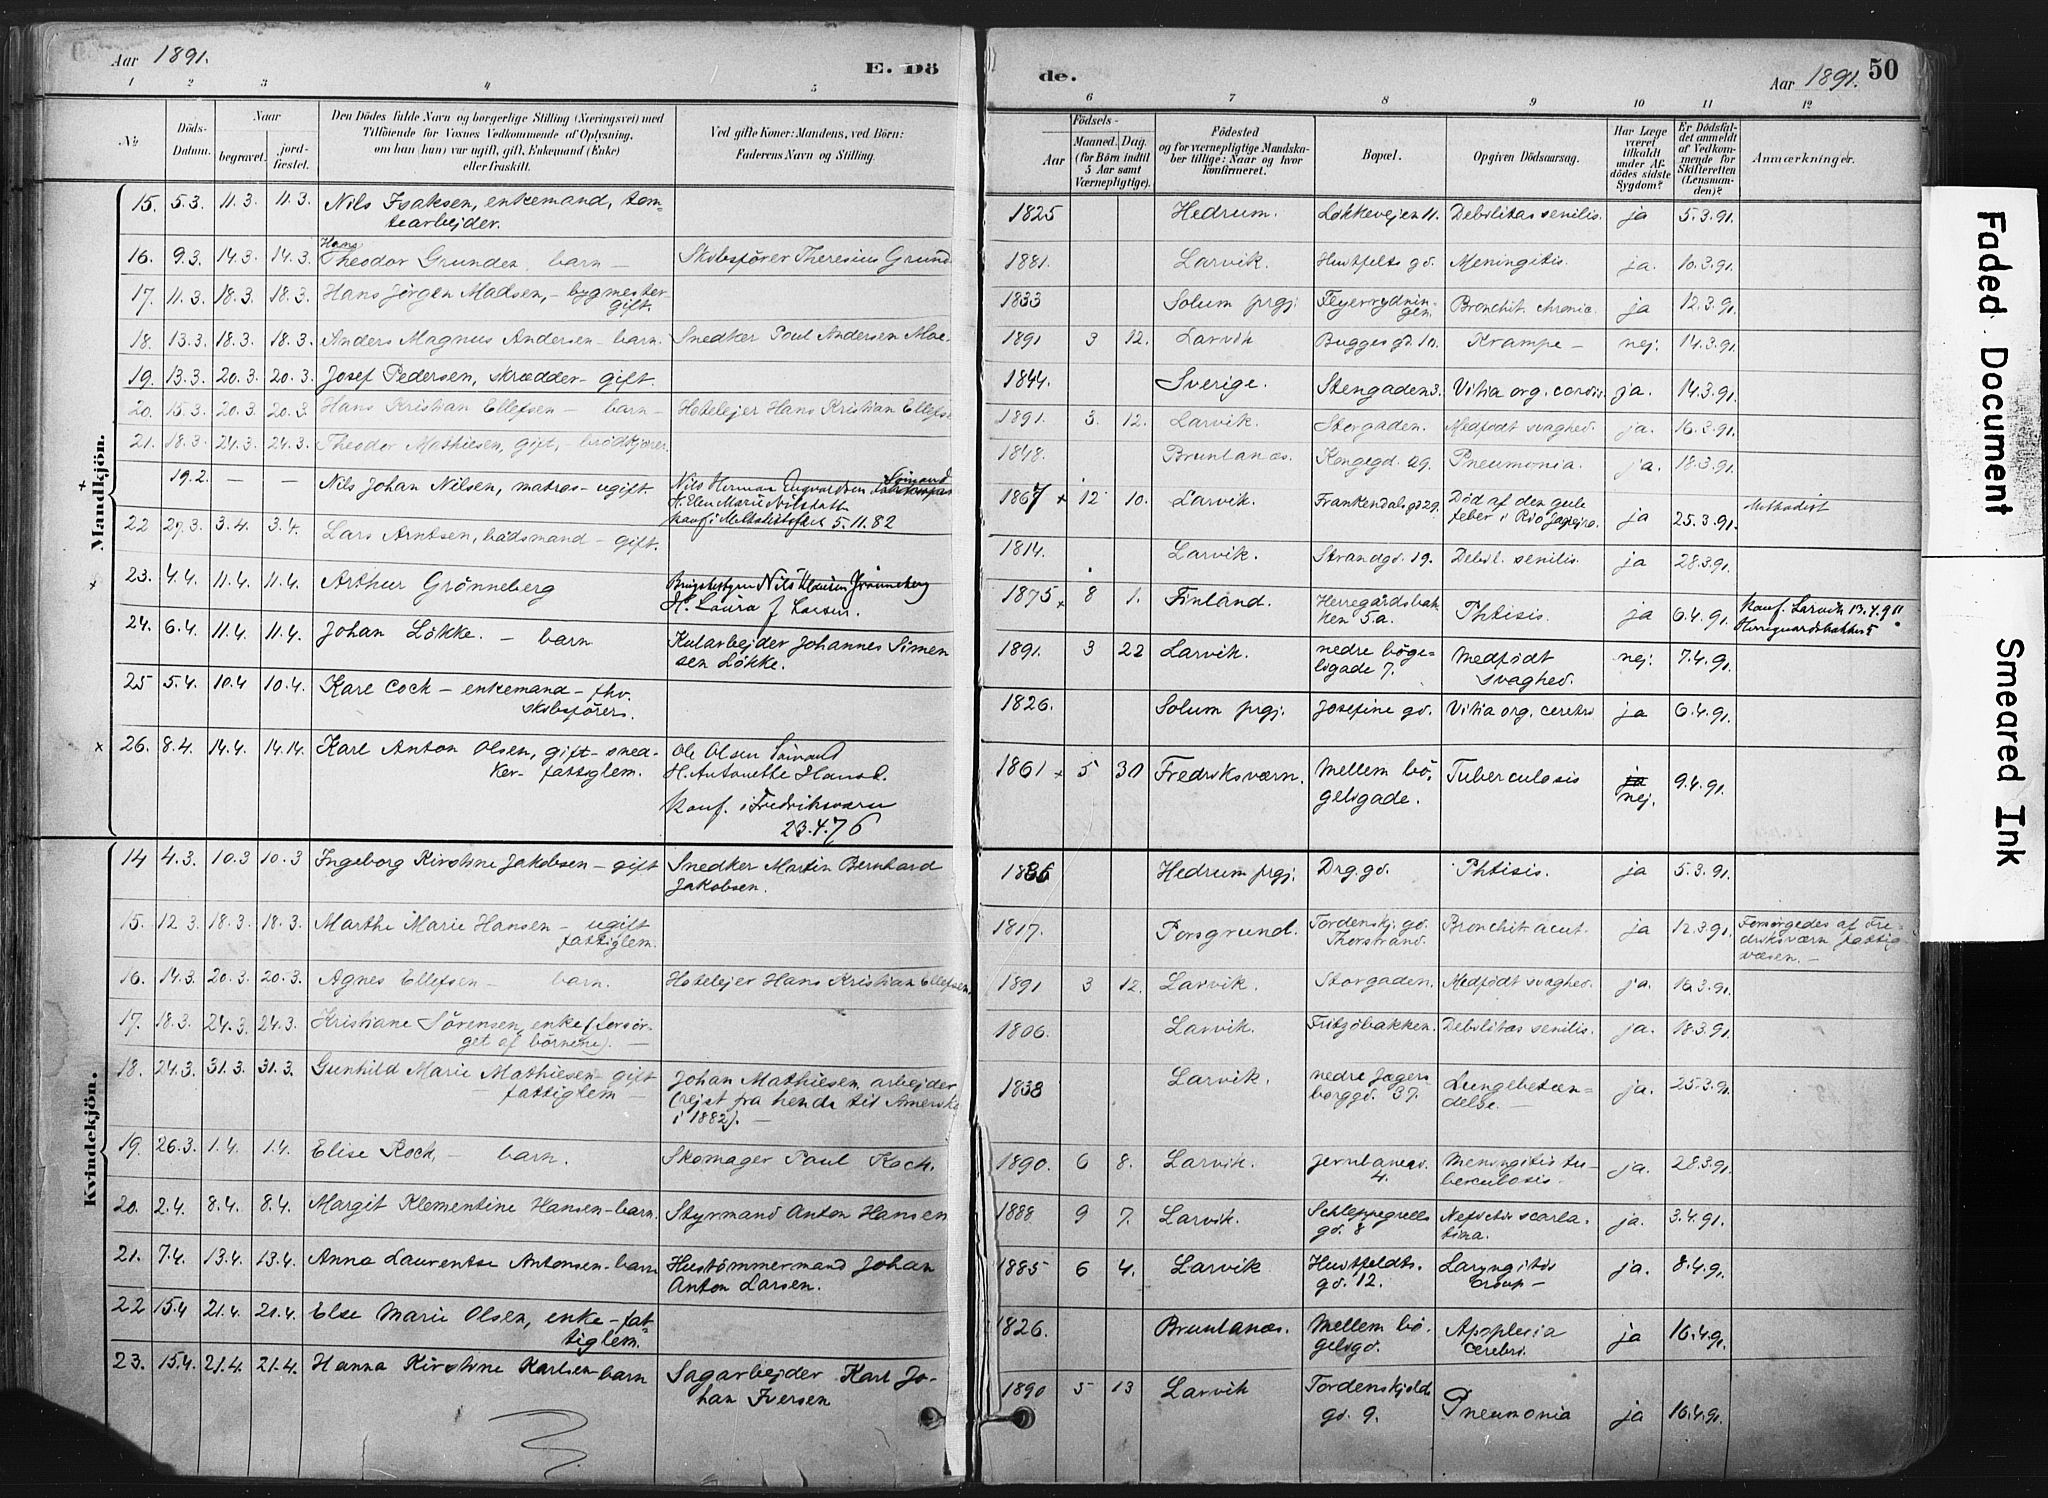 Aar 1891.
E. Dö
de.
Aar 1891.
50
1 2 3 4 5 6 7 8 9 10 11 12
No.
Döds-Datum.
Naar
begravet.
jord-fæstet.
Den Dödes fulde Navn og borgerlige Stilling (Næringsvei) med
Tilföiende for Voxnes Vedkommende af Oplysning,
om han (hun) var ugift, gift, Enkemand (Enke)
eller fraskilt.
Ved gifte Koner: Mandens, ved Börn:
Faderens Navn og Stilling.
Aar
Födsels-
Maaned. Dag.
(for Börn indtil
5 Aar samt
Værnepligtige).
Födested
og for værnepligtige Mandskaber tillige: Naar og hvor
konfirmeret.
Bopæl.
Opgiven Dödsaarsag.
Har Læge
været
tilkaldt
under Afdödes sidste
Sygdom?
Er Dödsfaldet anmeldt
af Vedkommende for
Skifteretten
(Lensmanden)?
Anmærkninger.
Mandkjön.
15. 5.3. 11.3. 11.3. Nils Isaksen, enkemand, tom- 1825 Hedrum. Løkkevejen 11. Debilitas senilis. ja 5.3.91.
tearbejder.
16. 9.3. 14.3. 14.3. Hans Theodor Grunden barn — Skibsfører Theresius Grund 1881. Larvik. Huitfelts gd. Meningitis. ja. 10.3.91.
17. 11.3. 18.3. 18.3. Hans Jörgen Madsen, — bygmester- 1833 Solum prgj. Fejerrydnin- Bronchit. chronic. ja 12.3.91.
gift. gen.
18. 13.3. 18.3. 18.3. Anders Magnus Andersen — barn. Snedker Poul Andersen Moe. 1891 3 12. Larvik Bugges gd. 10. Krampe — nej. 14.3.91.
19. 13.3. 20.3. 20.3. Josef Pedersen, skrædder — gift. 1844. Sverige. Stengaden 3. Vitia org. cordis. ja. 14.3.91.
20. 15.3. 20.3. 20.3. Hans Kristian Ellefsen — barn — Hotelejer Hans Kristian Ellefse 1891. 3. 12. Larvik. Storgaden. Medfödt svaghed. ja. 16.3.91.
21. 18.3. 24.3. 24.3. Theodor Mathiesen, gift, brödkjører. 1848. Brunlanæs. Kongegd. 29. Pneumonia. ja. 18.3.91.
19.2. — — Nils Johan Nilsen, matros — ugift. Nils Herman Sømand 1867 x 12 10. Larvik. Frankendalsgd 29. Död af den gule ja 25.3.91. Methodist
H. Elen Marie feber i Rio Janejro.
konf i 5.11.82
22 27.3. 3.4. 3.4. Lars Arntsen, bådsmand — gift. 1814. Larvik. Strandgd. 19. Debil. senilis. ja 28.3.91.
x 23. 4.4. 11.4. 11.4. Arthur Grönneberg Nils Klausen Grönneberg 1875 x 8 1. Finland. Herregårdsbak- Phtisis. ja 6.4.91. Konf. Larvik 13.4.90
H. Laura J Larsen. ken 5.a.
24. 6.4. 11.4. 11.4. Johan Lökke. — barn Kularbejder Johannes Simen 1891. 3 22 Larvik. nedre böge- Medfödt nej. 7.4.91.
sen Lökke. ligade 7. svaghed.
25 5.4. 10.4 10.4. Kare Cock — enkemand — fhv. 1826. Solum prgj. Josefine gd. Vitia org. cerebri ja 6.4.91.
skibsförer.
x 26. 8.4. 14.4. 14.14. Karl Anton Olsen, gift — sned- Ole Olsen Sømand 1861 x 5 30 Fredriksværn. Mellem bö- Tuberculosis ja 9.4.91.
ker — fattiglem. H. Antonette Hansd. geligade. nej.
Konf. i Fredriksværn
23.4.76
Kvindekjön.
14 4.3. 10.3 10.3 Ingeborg Kirstine Jakobsen — gift Snedker Martin Bernhard 1836 Hedrum prgj. Drg.gd. Phtisis. ja 5.3.91.
Jakobsen.
15. 12.3 18.3. 18.3. Marthe Marie Hansen — ugift 1817. Porsgrund. Tordenskj. gd. Bronchit acut. ja 12.3.91. Forsörgedes af Fre-
fattiglem. Thorstrand. driksværn fattig-
væsen. —
16. 14.3. 20.3. 20.3. Agnes Ellefsen — barn. Hotelejer Hans Kristian Ellefsen. 1891 3 12. Larvik. Storgaden. Medfödt svaghed. ja. 16.3.91.
17. 18.3. 24.3. 24.3. Kristiane Sörensen, enke (forsör- 1806. Larvik. Fritzöbakken. Debilitas senilis. ja. 18.3.91.
get af börnene). —
18. 24.3. 31.3. 31.3. Gunhild Marie Mathiesen — gift Johan Mathiesen, arbejder 1838 Larvik. nedre Jægers Lungebetæn- ja. 25.3.91.
fattiglem — (rejst fra hende til Amerika borggd. 37. delse. —
i 1882). —
19. 26.3. 1.4. 1.4. Elise Koch, — barn. Skomager Paul Koch. 1890. 6 8. Larvik. Jernbanegd. Meningitis tu- ja. 28.3.91.
4. berculosis.
20. 2.4. 8.4. 8.4. Margit Klementine Hansen — barn. Styrmand Anton Hansen 1888 9 7. Larvik. Schleppegrells Nefritis scarla- ja. 3.4.91.
gd. 8 tina.
21. 7.4. 13.4. 13.4. Anna Laurentse Antonsen — barn Hustömmermand Johan 1885 6 4. Larvik Huitfeldts. Laryngitis ja. 8.4.91.
Anton Larsen. gd. 12. Croup —
22 15.4 21.4. 21.4. Else Marie Olsen, enke — fat- 1826. Brunlanæs. Mellem bö- Apoplexia ja 16.4.91.
tiglem. geligd. cerebri.
23. 15.4. 21.4. 21.4. Hanna Kirstine Karlsen — barn Sagarbejder Karl Jo- 1890 5 13 Larvik Tordenskjold Pneumonia ja 16.4.91.
han Iversen gd. 9.
Faded Document
Smeared Ink